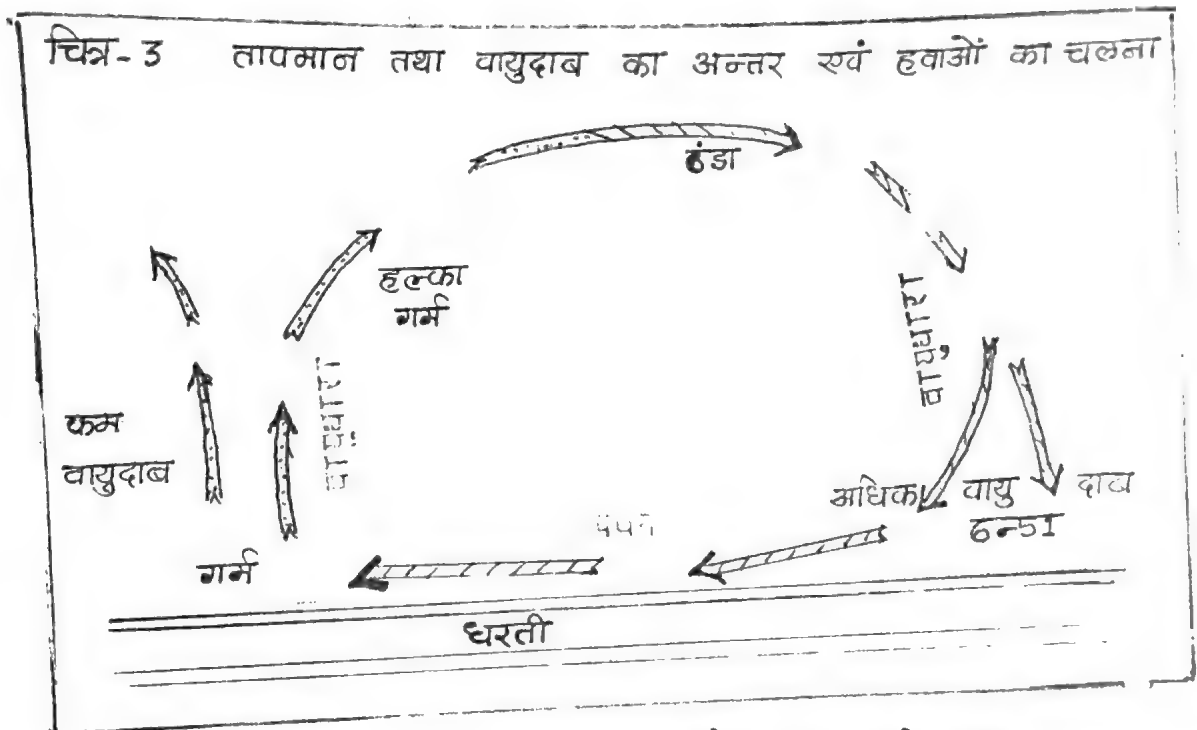 चित्र-3 तापमान तथा वायुदाब का अन्तर एवं हवाओं का चलना
ठंडा
हल्का
गर्म
वायुधारा
वायुधारा
कम
वायुदाब
अधिक वायु दाब
ठन्डा
गर्म
धरती